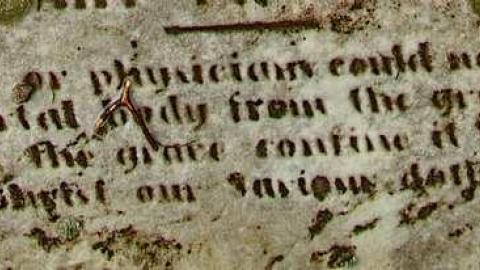 or physicians could
tal body from the gr
the grave confine it
our Saviour doth